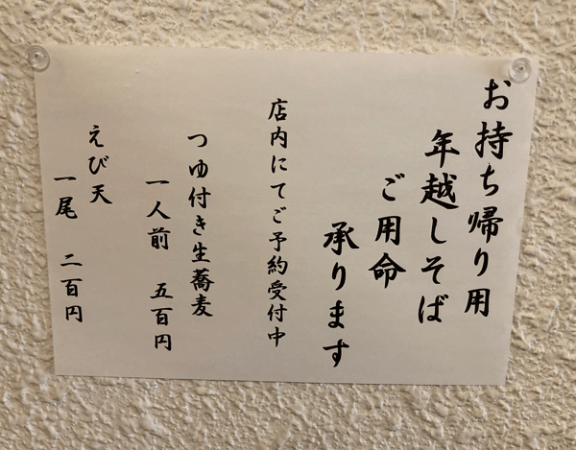 お持ち帰り用
年越しそば
ご用命
承ります
店内にてご予約受付中
つゆ付き生蕎麦
一人前 五百円
えび天
一尾 二百円